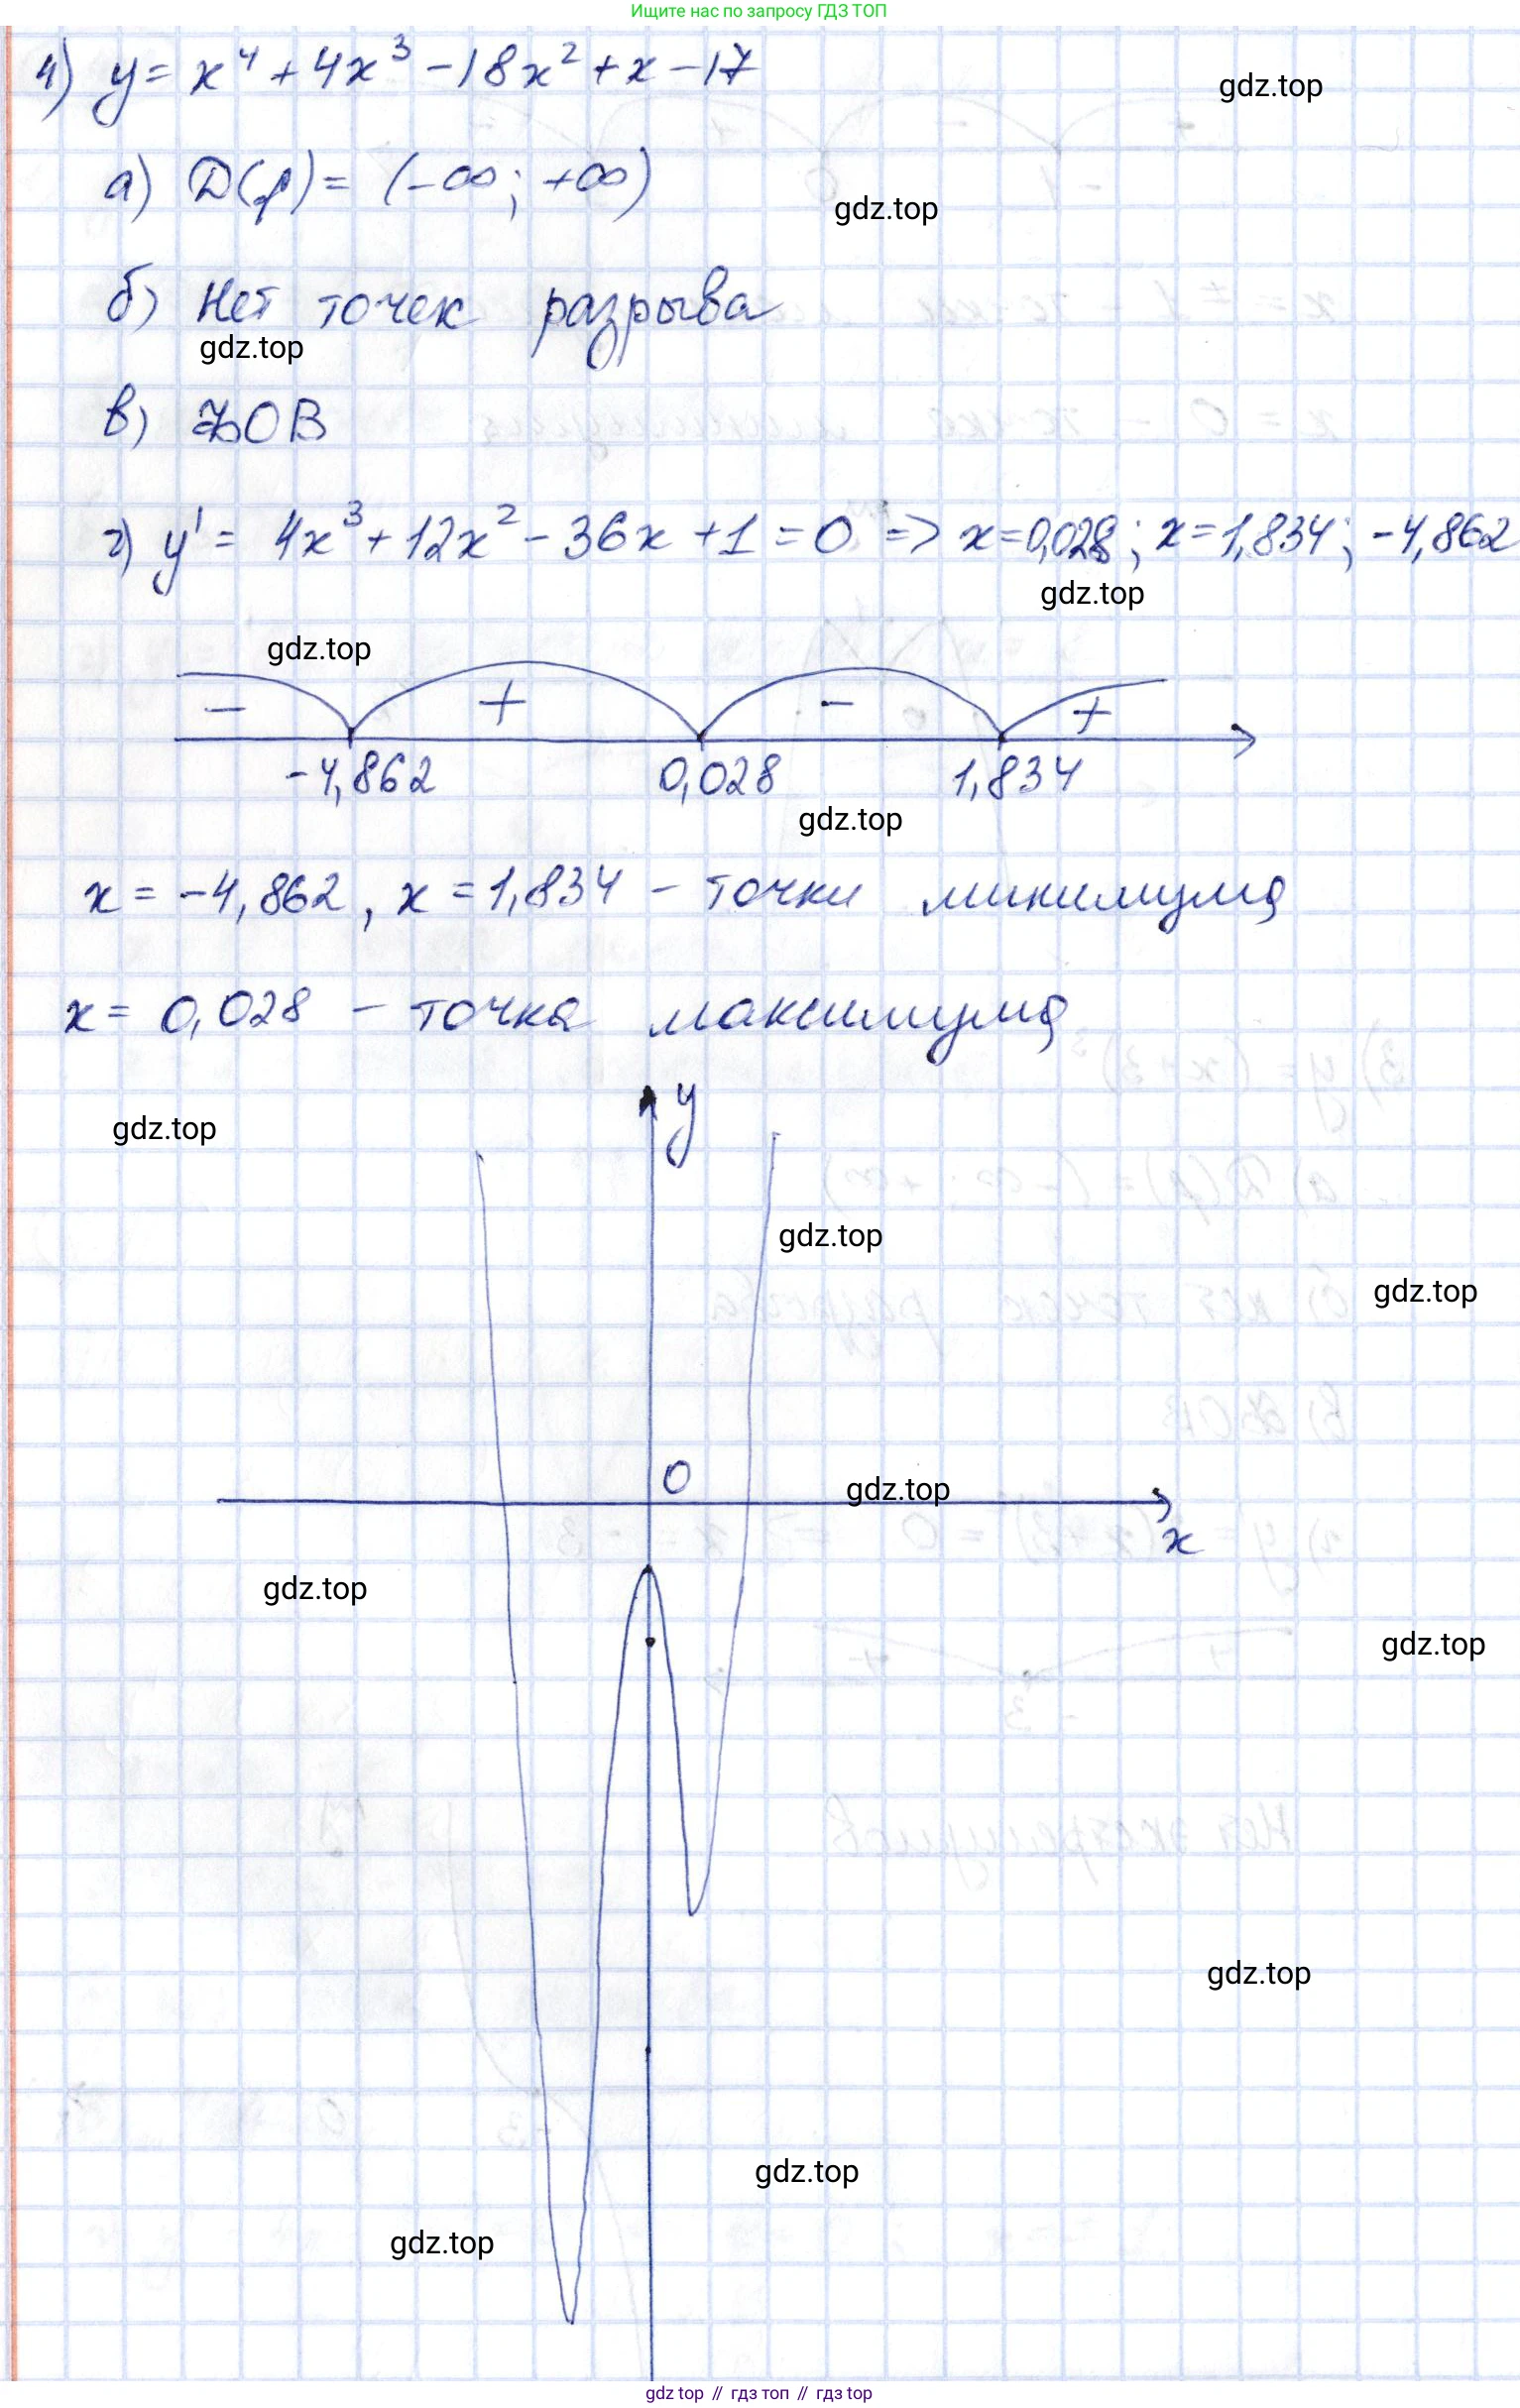 Ищите нас по запросу ГДЗ ТОП
4) y = x⁴ + 4x³ - 18x² + x - 17
gdz.top
а) D(f) = (-∞; +∞)
gdz.top
б) Нет точек разрыва
gdz.top
в) ФОВ
г) y' = 4x³ + 12x² - 36x + 1 = 0 => x = 0,028; x = 1,834; -4,862
gdz.top
gdz.top
- + - +
-4,862 0,028 1,834
gdz.top
x = -4,862, x = 1,834 - точки минимума
x = 0,028 - точка максимума
y
gdz.top
gdz.top
gdz.top
0
gdz.top
x
gdz.top
gdz.top
gdz.top
gdz.top
gdz.top
gdz top // гдз топ // гдз top